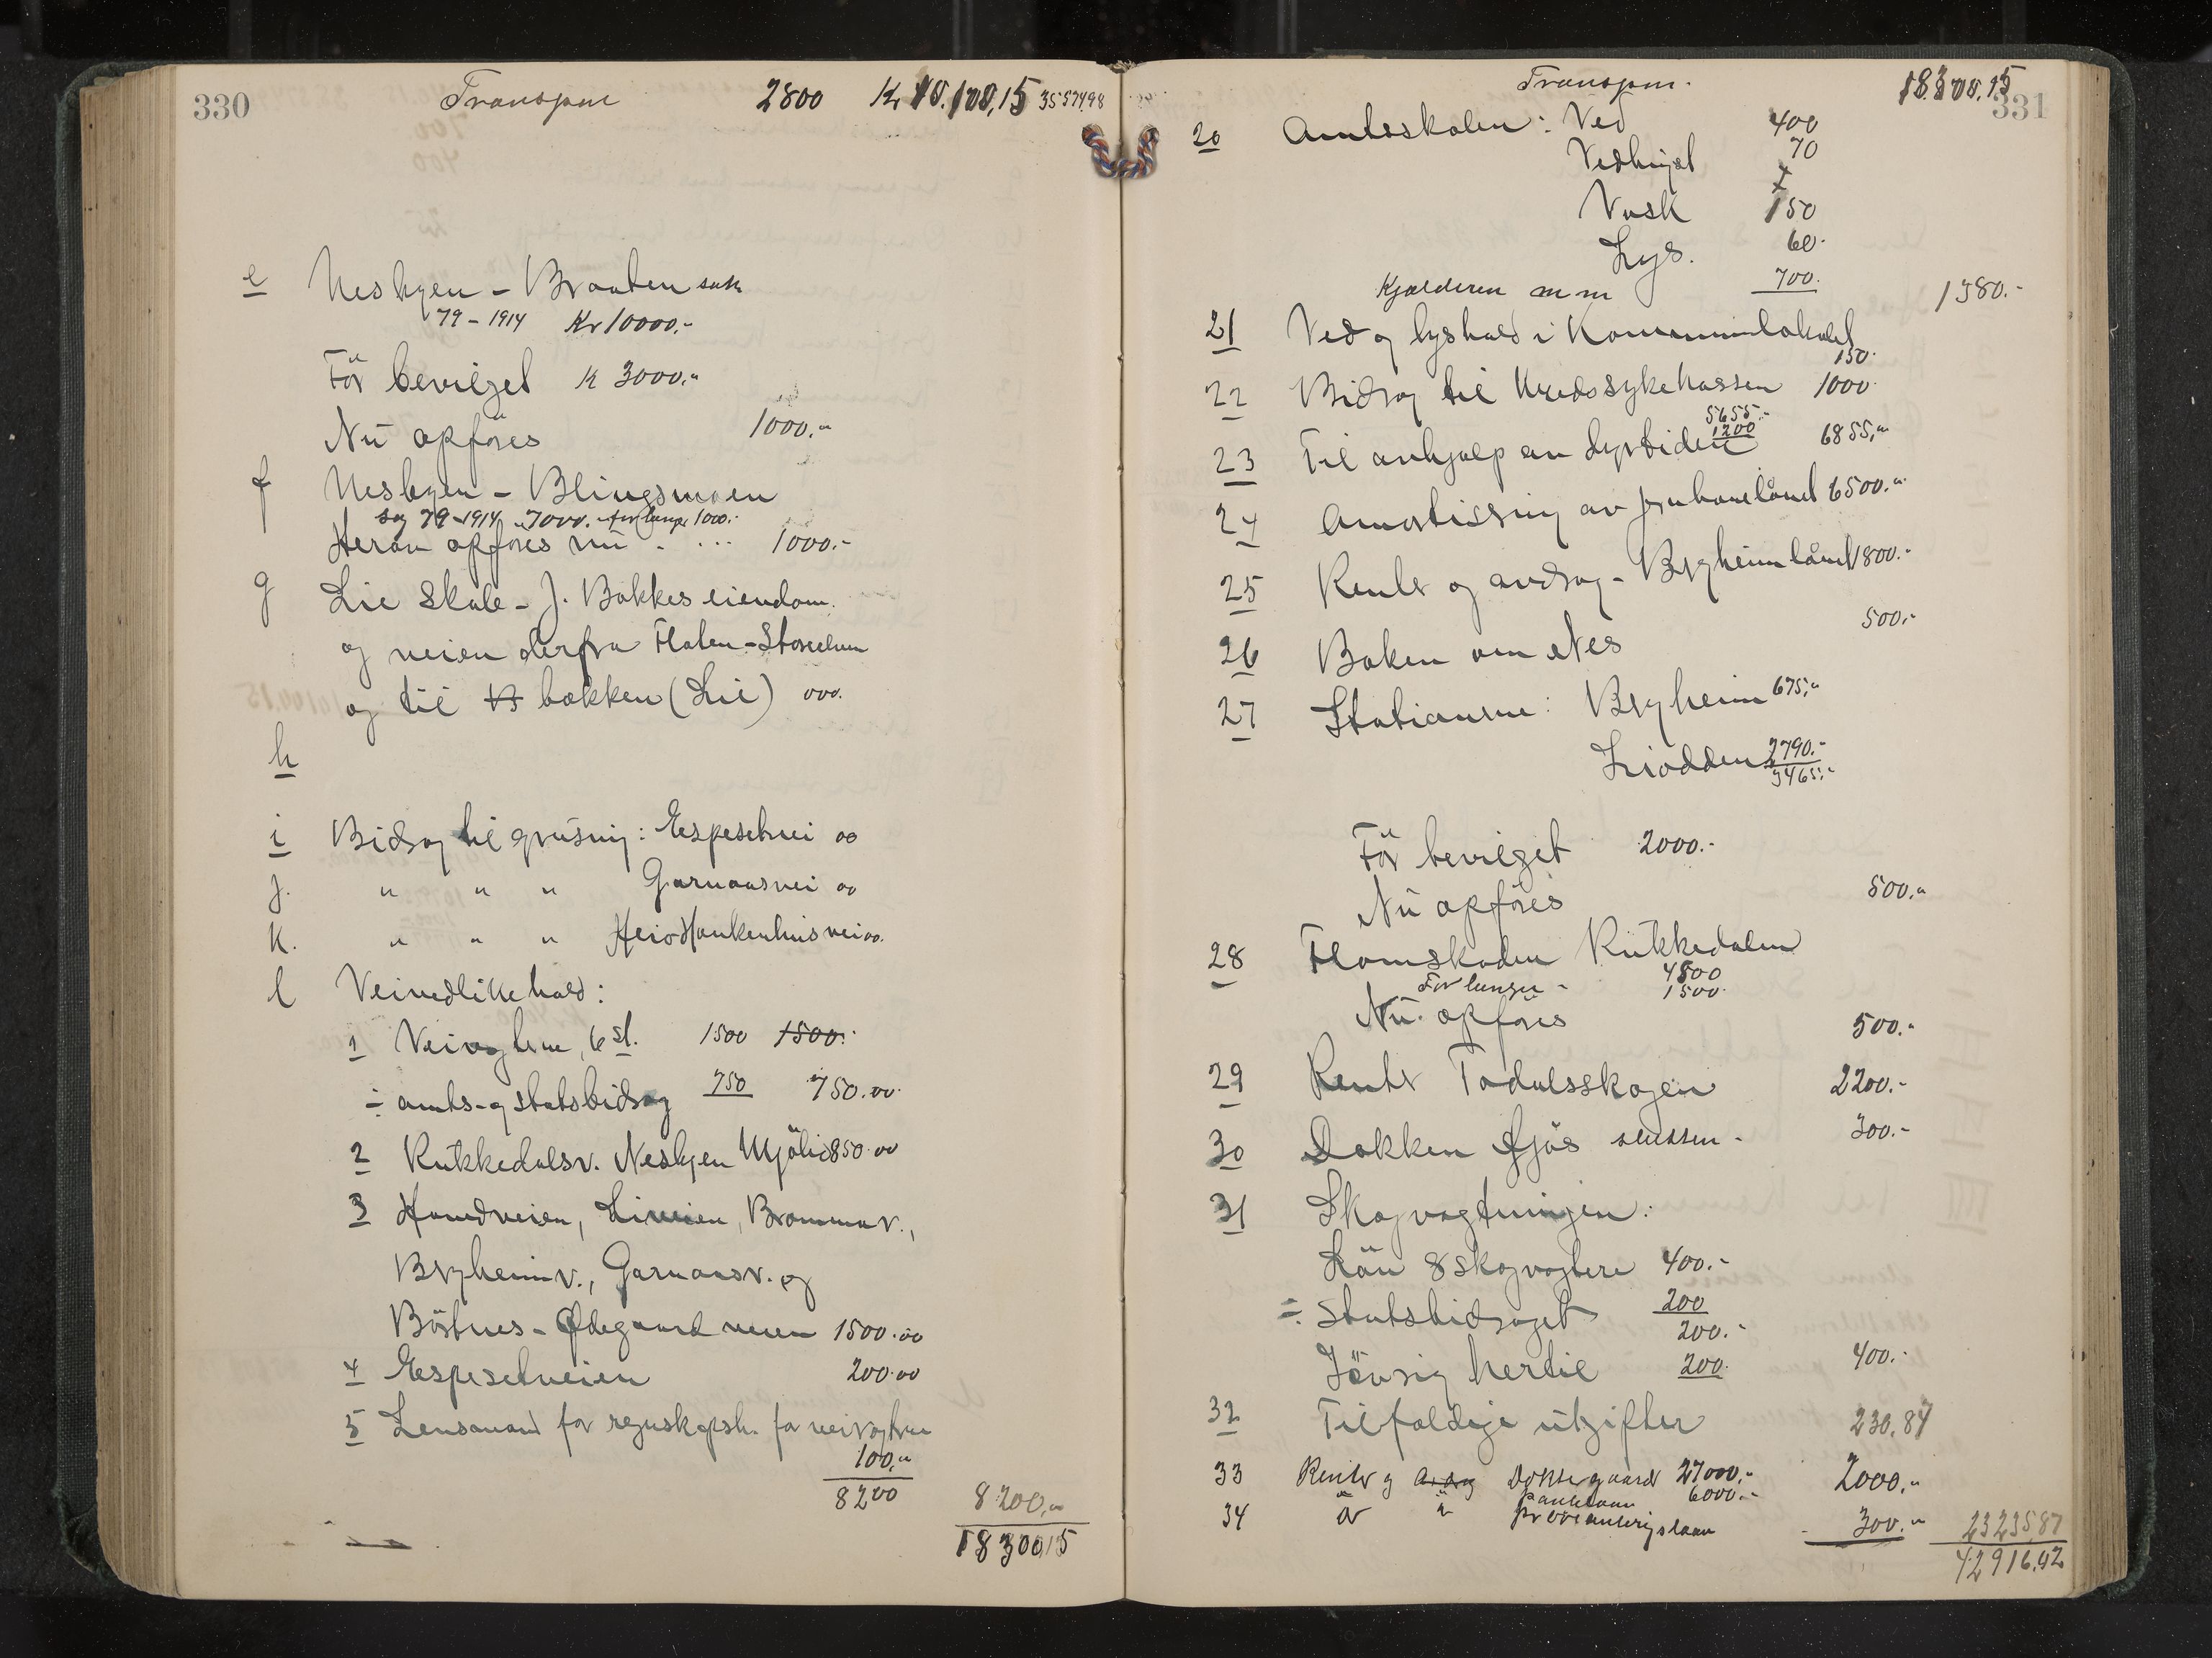 330
Transport 2800 Kr 10.100,15 3557498
e Nesbyen - Braaten sak
79 - 1914 Kr 10000.-
Før bevilget K 3000."
Nu opføres 1000."
f Nesbyen - Blingsmoen
sag 79-1914 7000. 1000.-
Herav opføres nu . ... 1000.-
g Lie Skole - J. Bakkes eiendom
og veien derfra Flaten - Storeelven
og til bækken (Lie) 000.
h
i Bidrag til grusning: Espesetvei 00
j. " " " Garnaasvei 00
k. " " " vei 00.
l Veivedlikehold:
1 Veivogterne, 6 st. 1500 1500.
÷ amts- og statsbidrag 750 750.00
2 Rukkedalsv. Nesbyen 850.00
3 Liveien, Brommav.,
Bryheimv., Garnaasv. og
Böstnes - Ødegaard veien 1500.00
4 Espesetveien 200.00
5 Lensmand for regnskapsh. for veivogterne
100."
8200 8200.00
18300,15
331
Transport. 18300,15
20 Amtsskolen: Ved 400
Vedhugst 70
Vask 150
Lys. 60.
Kjælderen m m 700. 1380.-
21 Ved og lyshold i Kommunelokalet
150.
22 Bidrag til Kredssykekassen 1000
5655.-
1200
23 Til avhjælp av dyrtiden 6855,"
24 Amortisering av jernbanelånet 6500."
25 Renter og avdrag - Bryheimlånet 1800.-
26 Boken om Nes 500.-
27 Stationerne: Bryheim 675,"
Liodden 2790.-
3465,-
Før bevilget 2000.-
Nu opføres 500."
28 Flomskaden Rukkedalen
4500
Forlanger - 1500
Nu opføres 500."
29 Renter Todalsskogen 2200.-
30 Dokken Gjøs slussen - 300.-
31 Skogvogtningen:
Løn 8 skogvogtere 400.-
÷ Statsbidraget 200
200.-
Jövrig hertil 200. 400.-
32 Tilfældige utgifter 230,87
33 Renter og avdrag Doktergaard 27000.- 2000."
Panelaan 6000.-
34 " " Provianteringslaan 300." 23235,87
42916,02